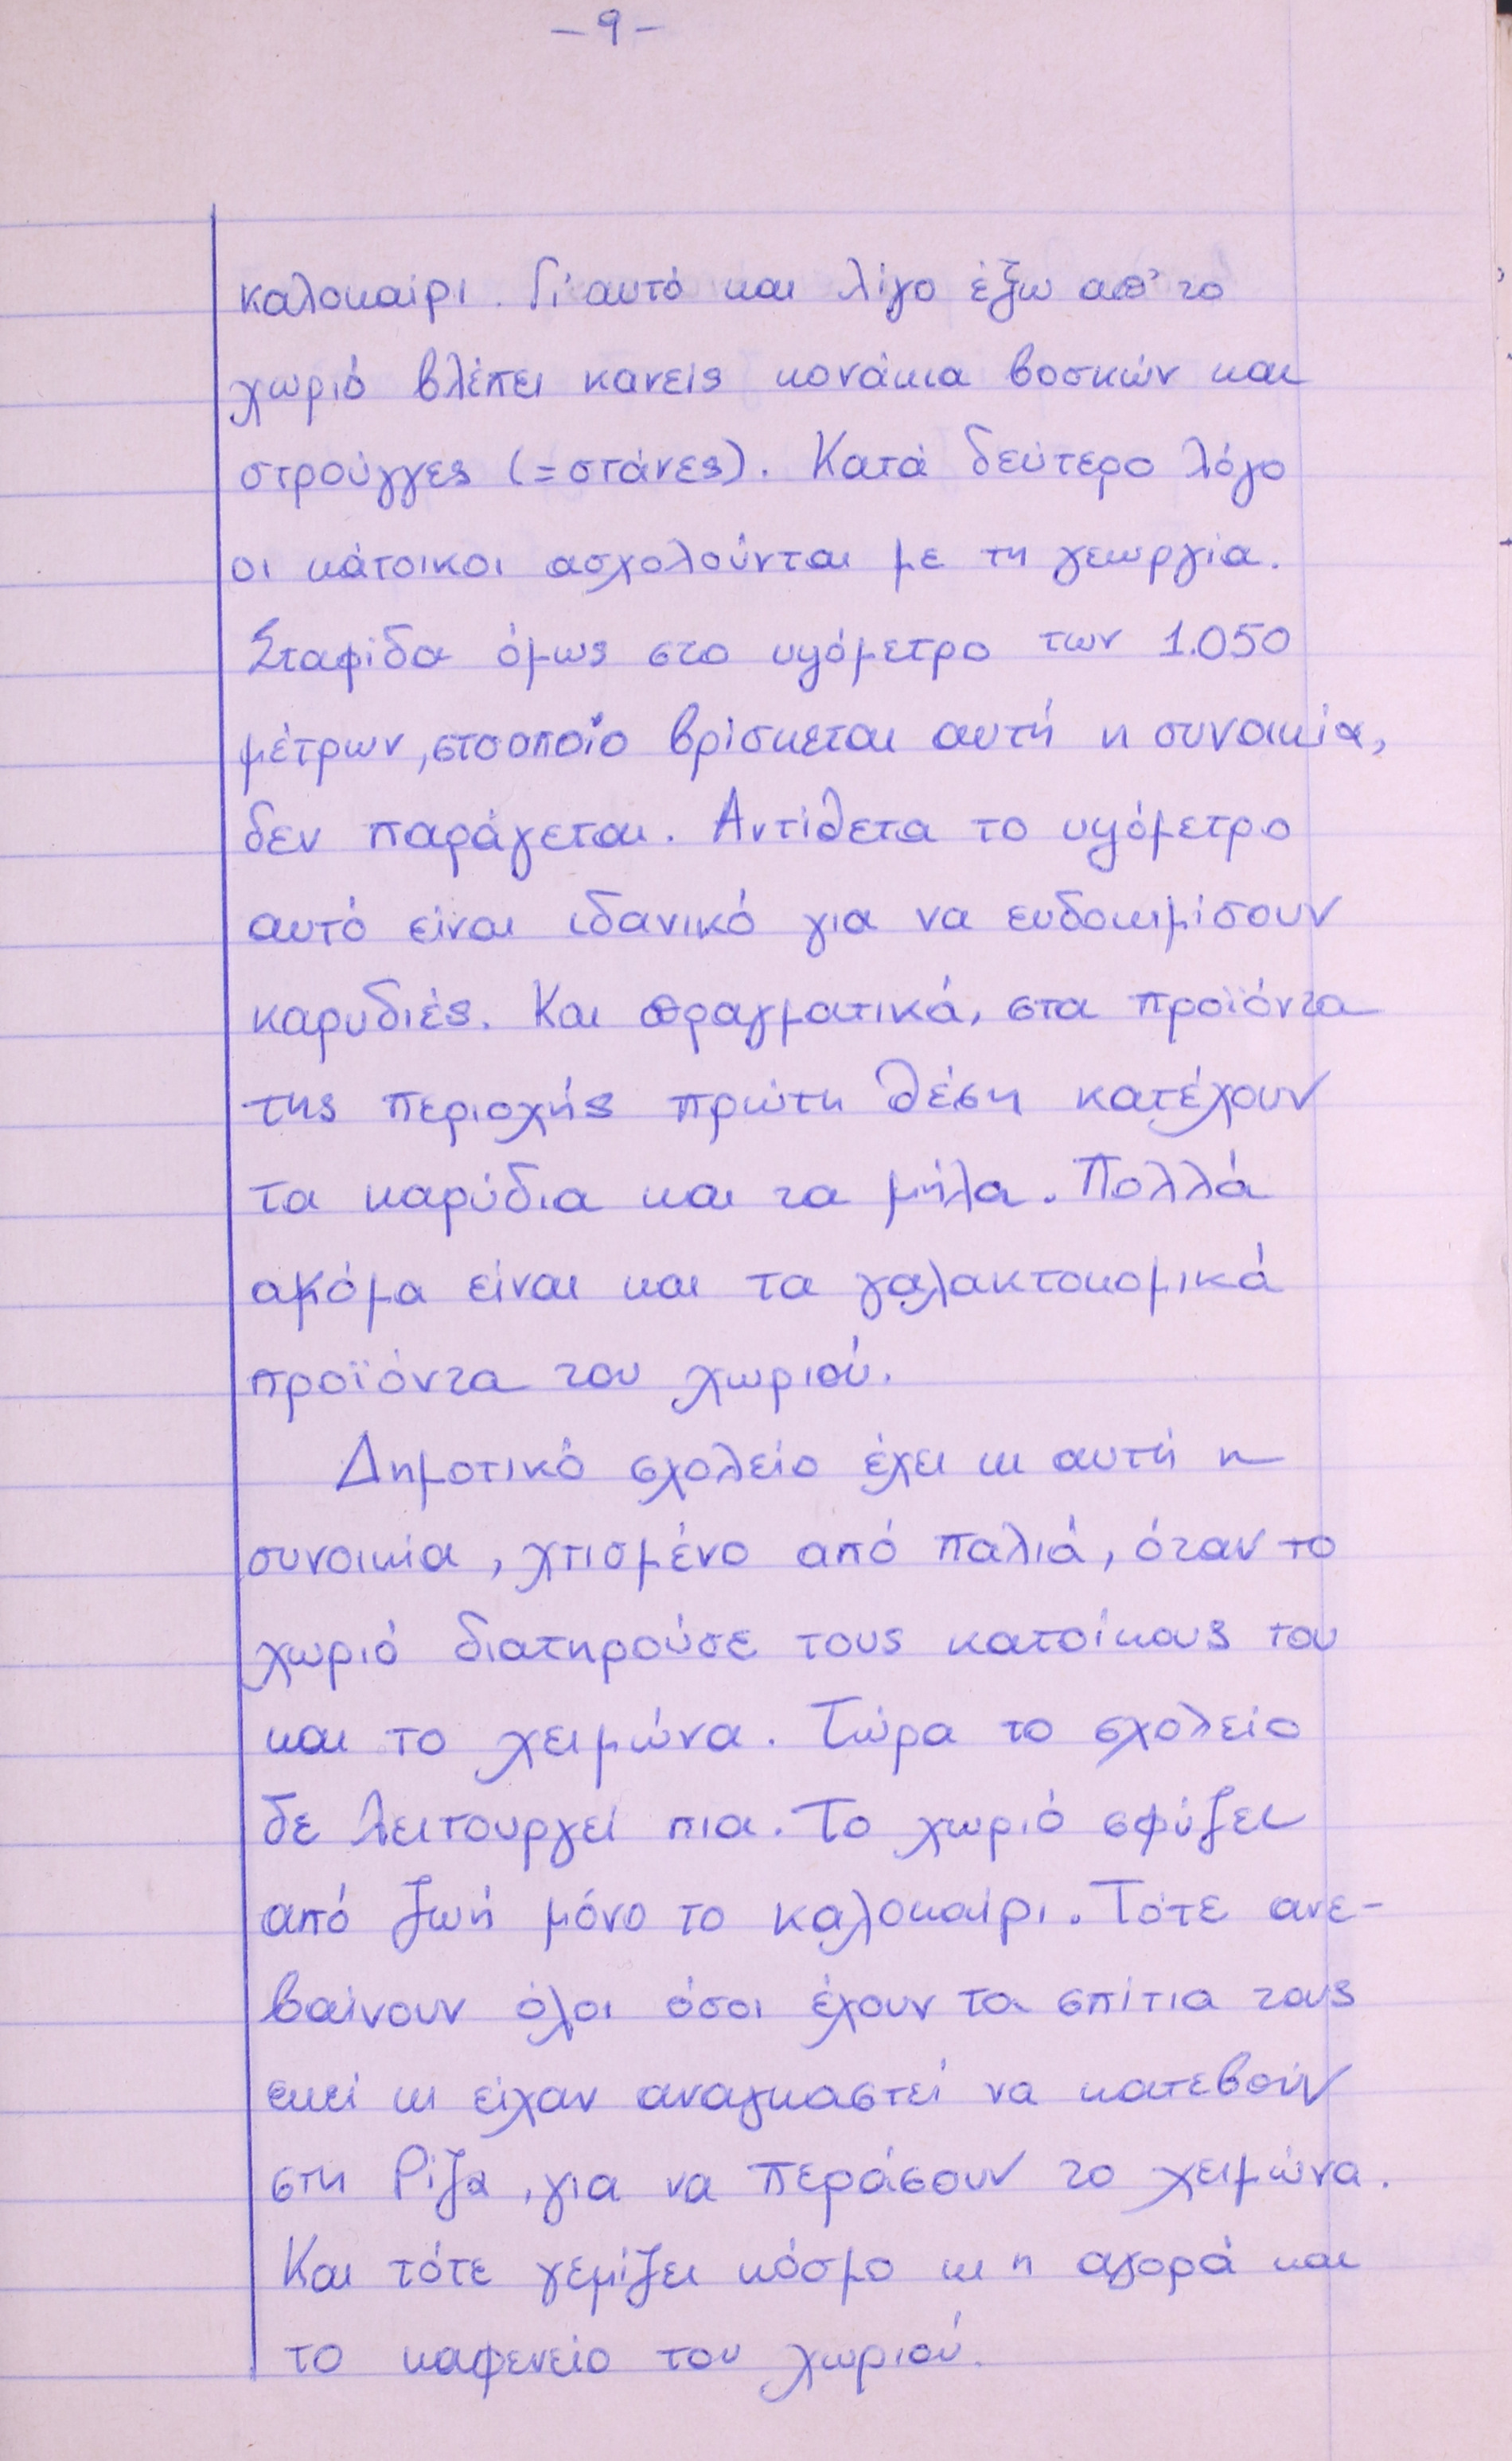 - 9 -
καλοκαίρι. Γι' αυτό και λίγο έξω απ' το
χωριό βλέπει κανείς κονάκια βοσκών και
στρούγγες (= στάνες). Κατά δεύτερο λόγο
οι κάτοικοι ασχολούνται με τη γεωργία.
Σταφίδα όμως στο υψόμετρο των 1.050
μέτρων, στο οποίο βρίσκεται αυτή η συνοικία,
δεν παράγεται. Αντίθετα το υψόμετρο
αυτό είναι ιδανικό για να ευδοκιμίσουν
καρυδιές. Και πραγματικά, στα προϊόντα
της περιοχής πρώτη θέση κατέχουν
τα καρύδια και τα μήλα. Πολλά
ακόμα είναι και τα γαλακτοκομικά
προϊόντα του χωριού.
Δημοτικό σχολείο έχει κι αυτή η
συνοικία, χτισμένο από παλιά, όταν το
χωριό διατηρούσε τους κατοίκους του
και το χειμώνα. Τώρα το σχολείο
δε λειτουργεί πια. Το χωριό σφύζει
από ζωή μόνο το καλοκαίρι. Τότε ανε-
βαίνουν όλοι όσοι έχουν τα σπίτια τους
εκεί κι είχαν αναγκαστεί να κατεβούν
στη Ρίζα, για να περάσουν το χειμώνα.
Και τότε γεμίζει κόσμο κι η αγορά και
το καφενείο του χωριού.